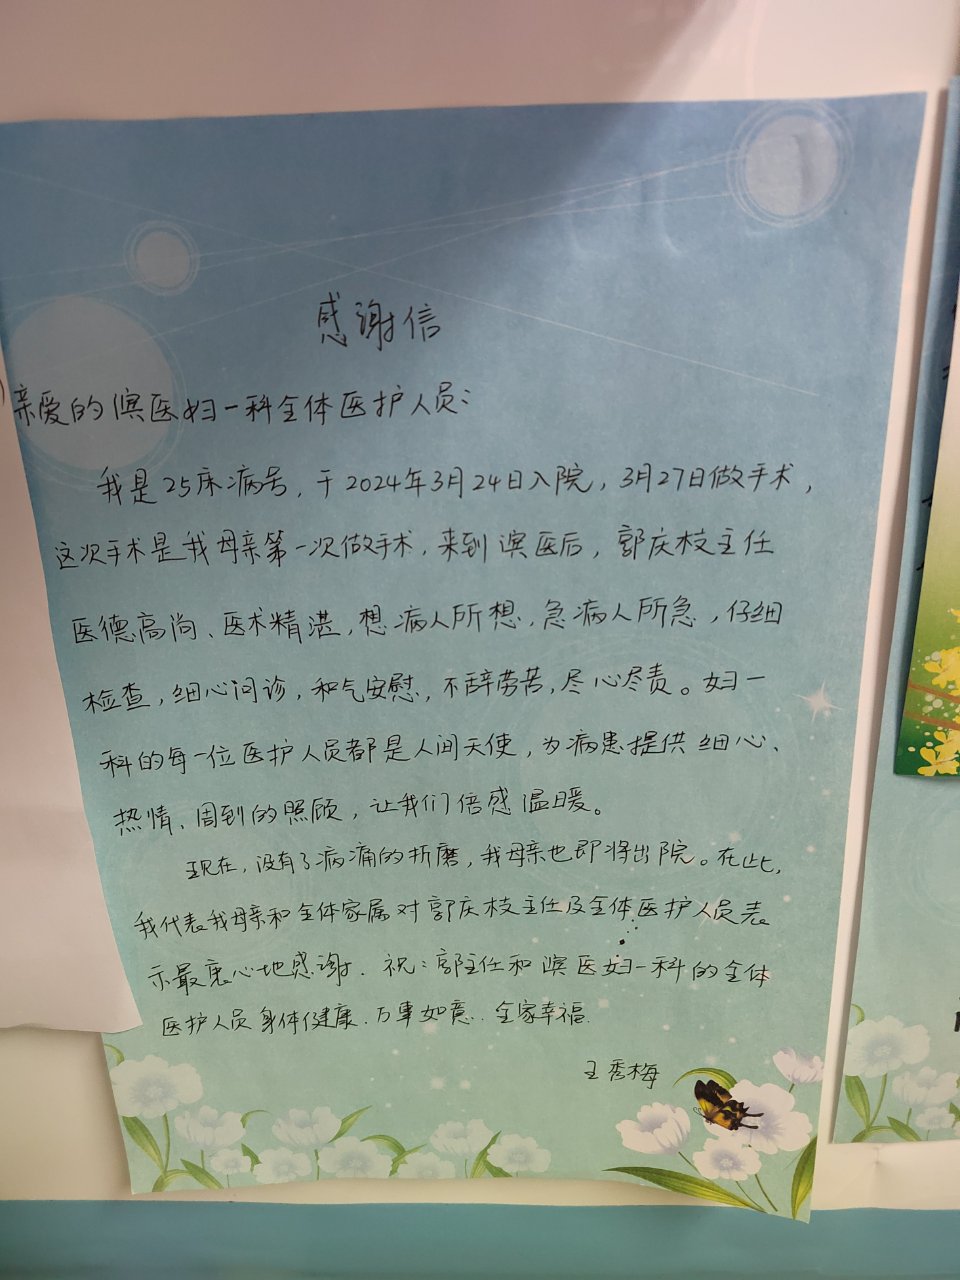 感谢信
亲爱的滨医妇一科全体医护人员：
我是25床病号，于2024年3月24日入院，3月27日做手术，
这次手术是我母亲第一次做手术，来到滨医后，郭庆枝主任
医德高尚、医术精湛，想病人所想，急病人所急，仔细
检查，细心问诊，和气安慰，不辞劳苦，尽心尽责。妇一
科的每一位医护人员都是人间天使，为病患提供细心、
热情、周到的照顾，让我们倍感温暖。
现在，没有了病痛的折磨，我母亲也即将出院。在此，
我代表我母亲和全体家属对郭庆枝主任及全体医护人员表
示最衷心地感谢．祝：郭主任和滨医妇一科的全体
医护人员身体健康．万事如意．全家幸福．
王秀梅